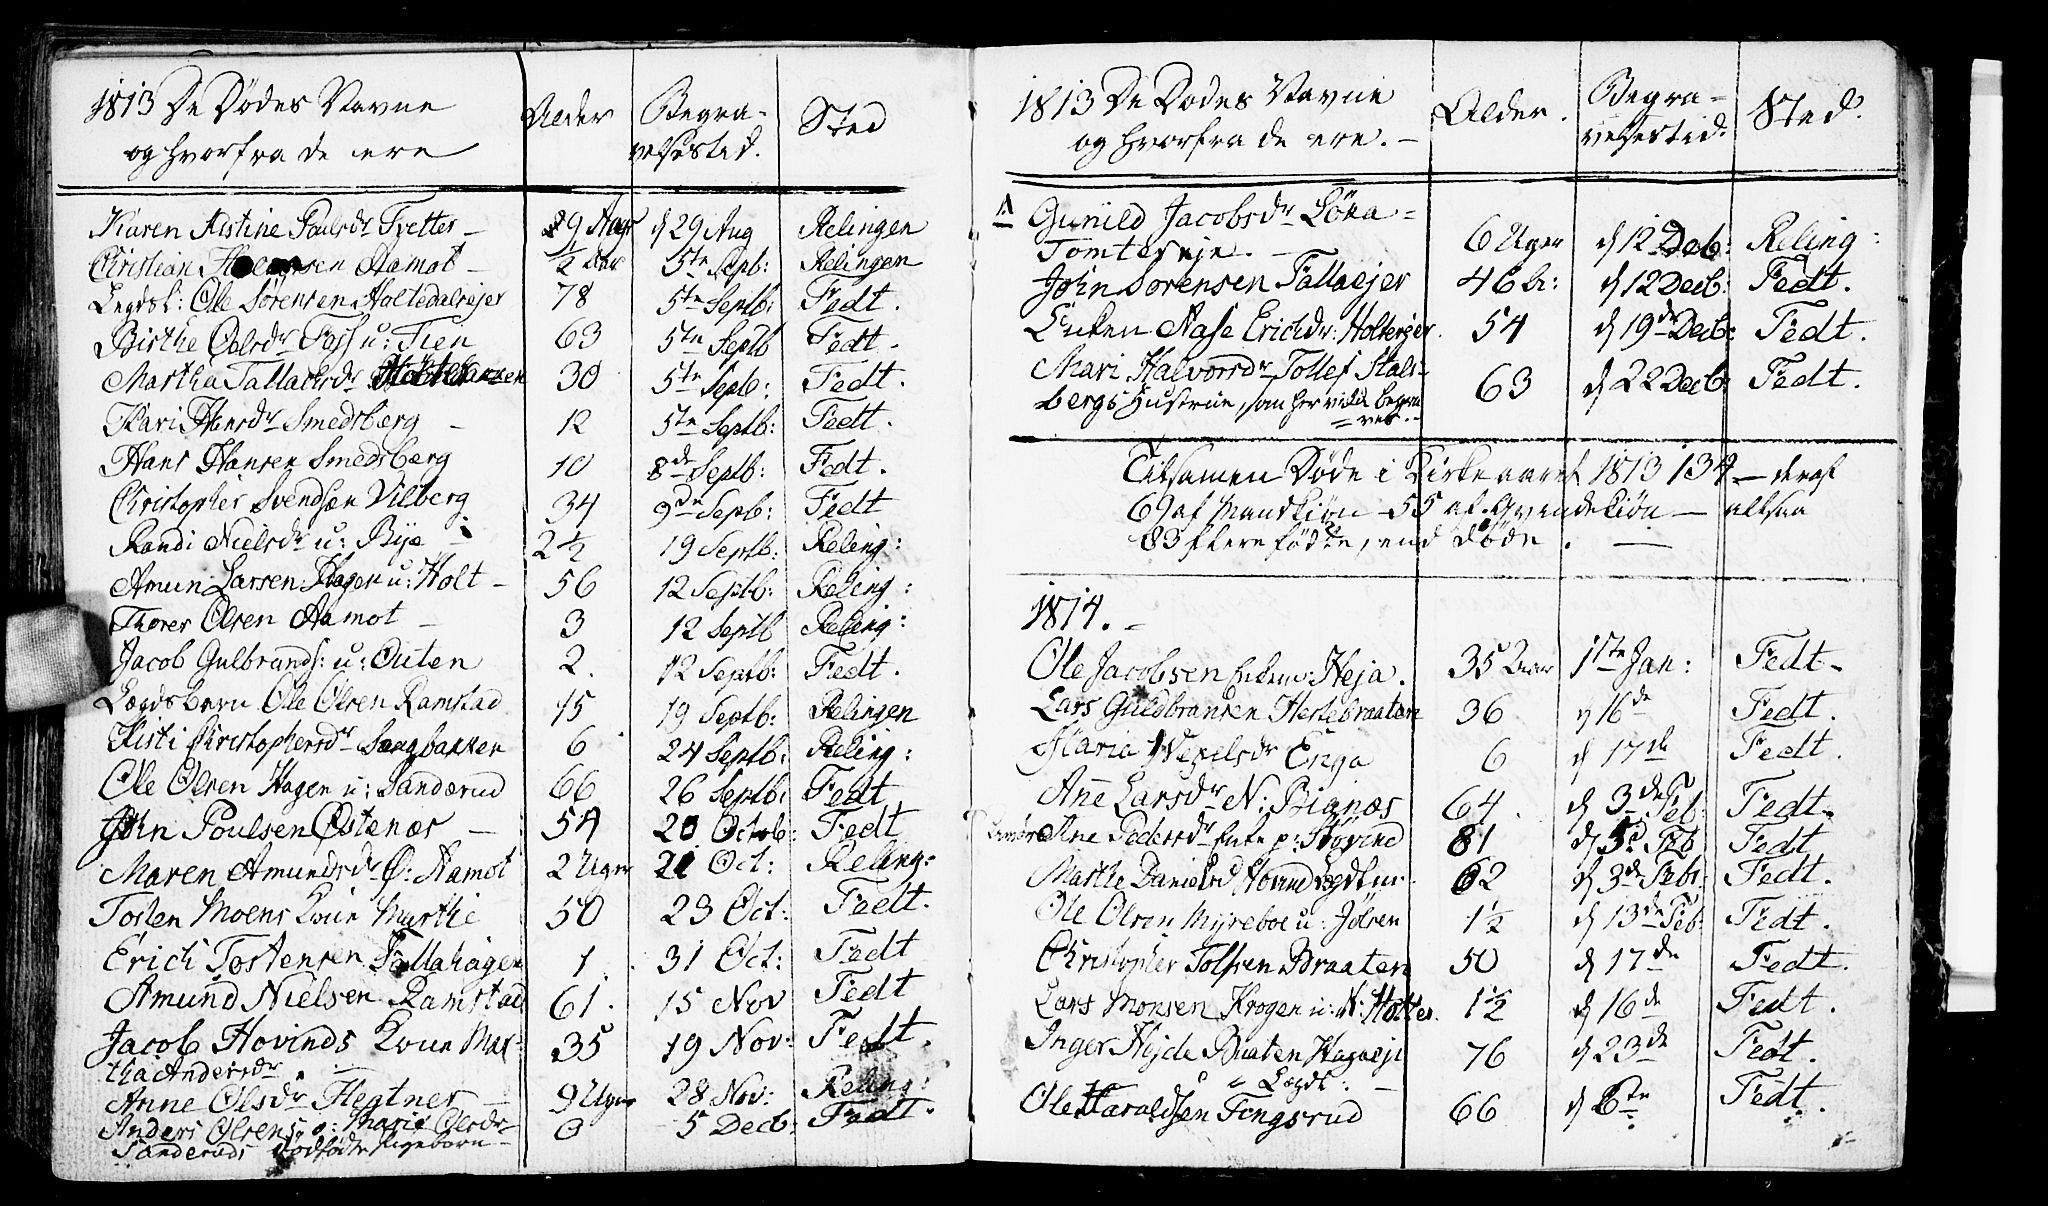 1813 De Dödes Navne
og hvorfra de ere
Alder
Begra-
velsestid.
Sted
Karen Kistine Poulsdr Tvetter - d 29 Aug Relingen
Christian Aamot - ½ Aar 5te Septb: Relingen
Legdsl: Ole Sörensen Holtedalsejer 78 5te Septb: Fedt.
Birthe Olsdr Foss u: Tien 63 5te Septb Fedt.
Martha Tallachsdr 30 5te Septb: Fedt.
Kari Hansdr Smedsberg - 12 5te Septb: Fedt.
Hans Hansen Smedsberg 10 8de Septb: Fedt.
Christopher Svendsen Vilberg 34 9de Septb: Fedt
Randi Nielsdr u: Bye 2½ 19 Septb: Reling:
Amun Larsen Hagen u: Holt - 56 12 Septb: Reling:
Thorer Olsen Aamot - 3 12 Septb Reling:
Jacob Gulbrands: u: Outen 2. 12 Septb: Fedt.
Legdsbarn Ole Olsen Ramstad 15 19 Septb: Relingen
Kisti Christophersdr Sangbakken 6 24 Septb: Reling:
Ole Olsen Hagen u: Sanderud 66 26 Septb: Fedt
John Poulsen Östenær - 54 20 Octob: Fedt
Maren Amundsdr Ö: Aamot 2 Uger 21 Oct: Reling:
Tosten Moens Kone Marthe 50 23 Oct: Fedt.
Erich Tostensen Fallahagen 1 31 Oct: Fedt
Amund Nielsen Ramstad 61. 15 Nov Fedt
Jacob Hovinds Kone Mar- 35 19 Nov: Fedt.
tha Andersdr
Anne Olsdr Hegtner - 9 Uger 28 Nov: Reling:
Anders Olsens o: Marie Olsdr 0 5 Decb: Fedt.
Sanderuds dödfödte Pigebarn -
1813 De Dödes Navne
og hvorfra de ere. -
Alder.
Begra-
velsestid.
Sted.
Gunild Jacobsdr Löka-
Tomteseje. - 6 Uger d 12 Decb: Reling:
John Sörensen Fallaejer 46 Aar: d 12 Decb: Fedt.
Enken Aase Erichdr: Holterejer 54 d 19de Decb: Fedt.
Mari Halvorsdr Tollef Stals-
bergs Hustrue, som her vilde begra- 63 d 22 Decb: Fedt.
ves. -
Tilsamen Döde i Kirkeaaret 1813 134 - deraf
69 af Mandkiön - 55 af Qvindekiön - altsaa
83 flere födte, end döde.
1814. -
Ole Jacobsen Heja. 35 Aar 1ste Jan: Fedt -
Lars Guldbransen Hestebraaten 36 d 16de Fedt.
Maria Wexelsdr Enga 6 d 17de Fedt.
Ane Larsdr N: Bianæs 64. d 3de Feb: Fedt.
Ane Pedersdr Enke p: Hövind 81 d Feb Fedt
Marthe Danielsd Hovind Legdkone 62 d 3de Feb: Fedt.
Ole Olsen Myreboe u: Jölsen 1½ d 13de Feb: Fedt.
Christopher Tolfsen Braaten 50 d 17de Fedt.
Lars Monsen Krogen u: N: Holter. 1½ d 16de Fedt.
Inger Hejde Braaten Hagaeje 76 d 23de Fedt.
Legdl: -
Ole Haraldsen Tingsrud 66 d 6te Fedt.